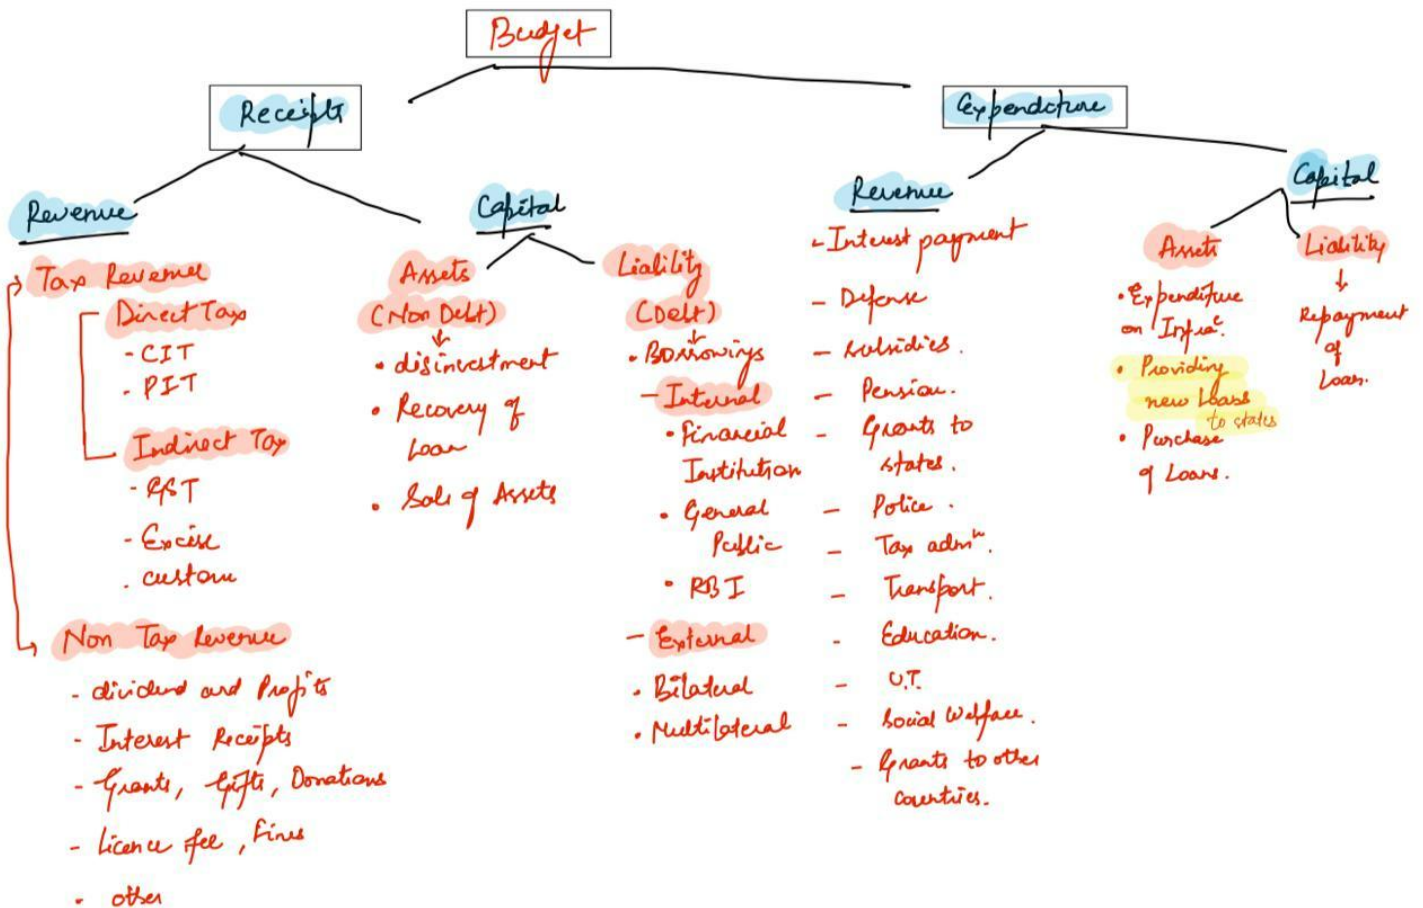 Budget
Receipts
Expenditure
Revenue
Tax Revenue
Direct Tax
- CIT
- PIT
Indirect Tax
- GST
- Excise
. custom
Non Tax Revenue
- dividend and Profits
- Interest Receipts
- Grants, Gifts, Donations
- Licence fee, Fines
• other
Capital
Assets
(Non Debt)
• disinvestment
• Recovery of
Loan
• Sale of Assets
Liability
(Debt)
• Borrowings
- Internal
• Financial
Institution
• General
Public
• RBI
- External
• Bilateral
• Multilateral
Revenue
- Interest payment
- Defense
- subsidies.
- Pension.
- Grants to
states.
- Police.
- Tax admn.
- Transport.
- Education.
- U.T.
- Social Welfare.
- Grants to other
countries.
Capital
Assets
• Expenditure
on Infrac.
• Providing
new loans
to states
• Purchase
of Loans.
Liability
Repayment
of
Loan.